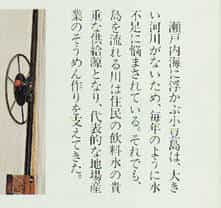 瀬戸内海に浮かぶ小豆島は、大き
い河川がないため、毎年のように水
不足に悩まされている。それでも、
島を流れる川は住民の飲料水の貴
重な供給源となり、代表的な地場産
業のそうめん作りを支えてきた。